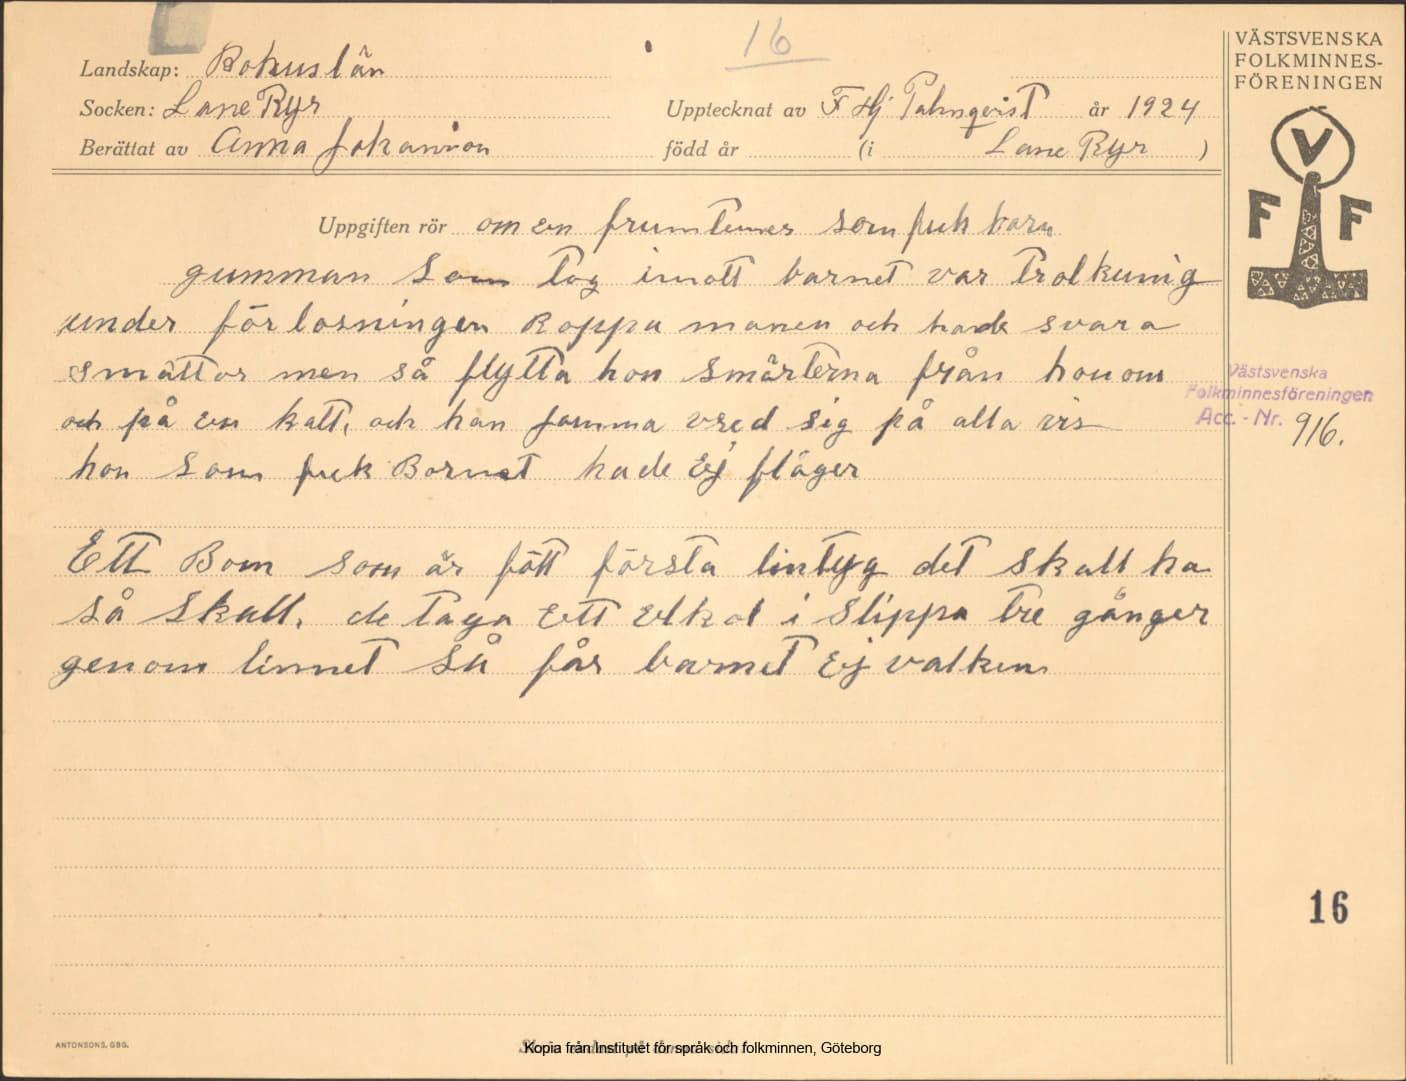 16
Landskap: Bohuslän
Socken: Lane Ryr
Upptecknat av F Hj Palmqvist år 1924
Berättat av Anna Johansson
född år (i Lane Ryr )
Uppgiften rör om en fruntimer som fick barn
gumman som tog imott barnet var trolkunig
under förlosningen Roppa manen och hade svara
smättor men så flytta hon smärterna från honom
och på en katt, och han jamma vred sig på alla vis
hon som fick Barnet hade Ej plåger
Ett Barn som är fött första lintyg det skall ha
så skall, de taga Ett Elkol i Slippa tre gånger
genom linnet så får barnet Ej valken
VÄSTSVENSKA
FOLKMINNES-
FÖRENINGEN
V
F F
Västsvenska
Folkminnesföreningen
Acc. - Nr. 916.
16
ANTONSONS, GBG.
Kopia från Institutet för språk och folkminnen, Göteborg